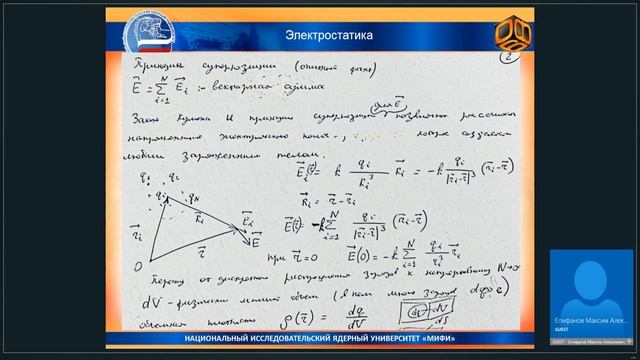 Электростатика
2
Принцип суперпозиции (опытный факт)
E⃗ = ∑ᵢ₌₁ᴺ E⃗ᵢ - векторная сумма
для E⃗
Закон Кулона и принцип суперпозиции позволяют рассчитать
напряжение электрического поля, которое создается
любым заряженным телом.
E⃗ᵢ(r⃗) = k qᵢ/Rᵢ³ R⃗ᵢ = -k qᵢ/|r⃗ᵢ-r⃗|³ (r⃗ᵢ-r⃗)
R⃗ᵢ = r⃗ - r⃗ᵢ
q₁ qᵢ q_N
R⃗ᵢ E⃗ᵢ E⃗
r⃗ᵢ r⃗
O
E⃗(r⃗) = -k ∑ᵢ₌₁ᴺ qᵢ/|r⃗ᵢ-r⃗|³ (r⃗ᵢ-r⃗)
при r⃗=0 E⃗(0) = -k ∑ᵢ₌₁ᴺ qᵢ/rᵢ³ r⃗ᵢ
Переход от дискретного распределения зарядов к непрерывному N→∞
dV - физически малый объем (в нем много зарядов dq≫e)
объемная плотность ρ(r⃗) = dq/dV
НАЦИОНАЛЬНЫЙ ИССЛЕДОВАТЕЛЬСКИЙ ЯДЕРНЫЙ УНИВЕРСИТЕТ «МИФИ»
Епифанов Максим Алек...
GUEST
GUEST - Епифанов Максим Алексеевич